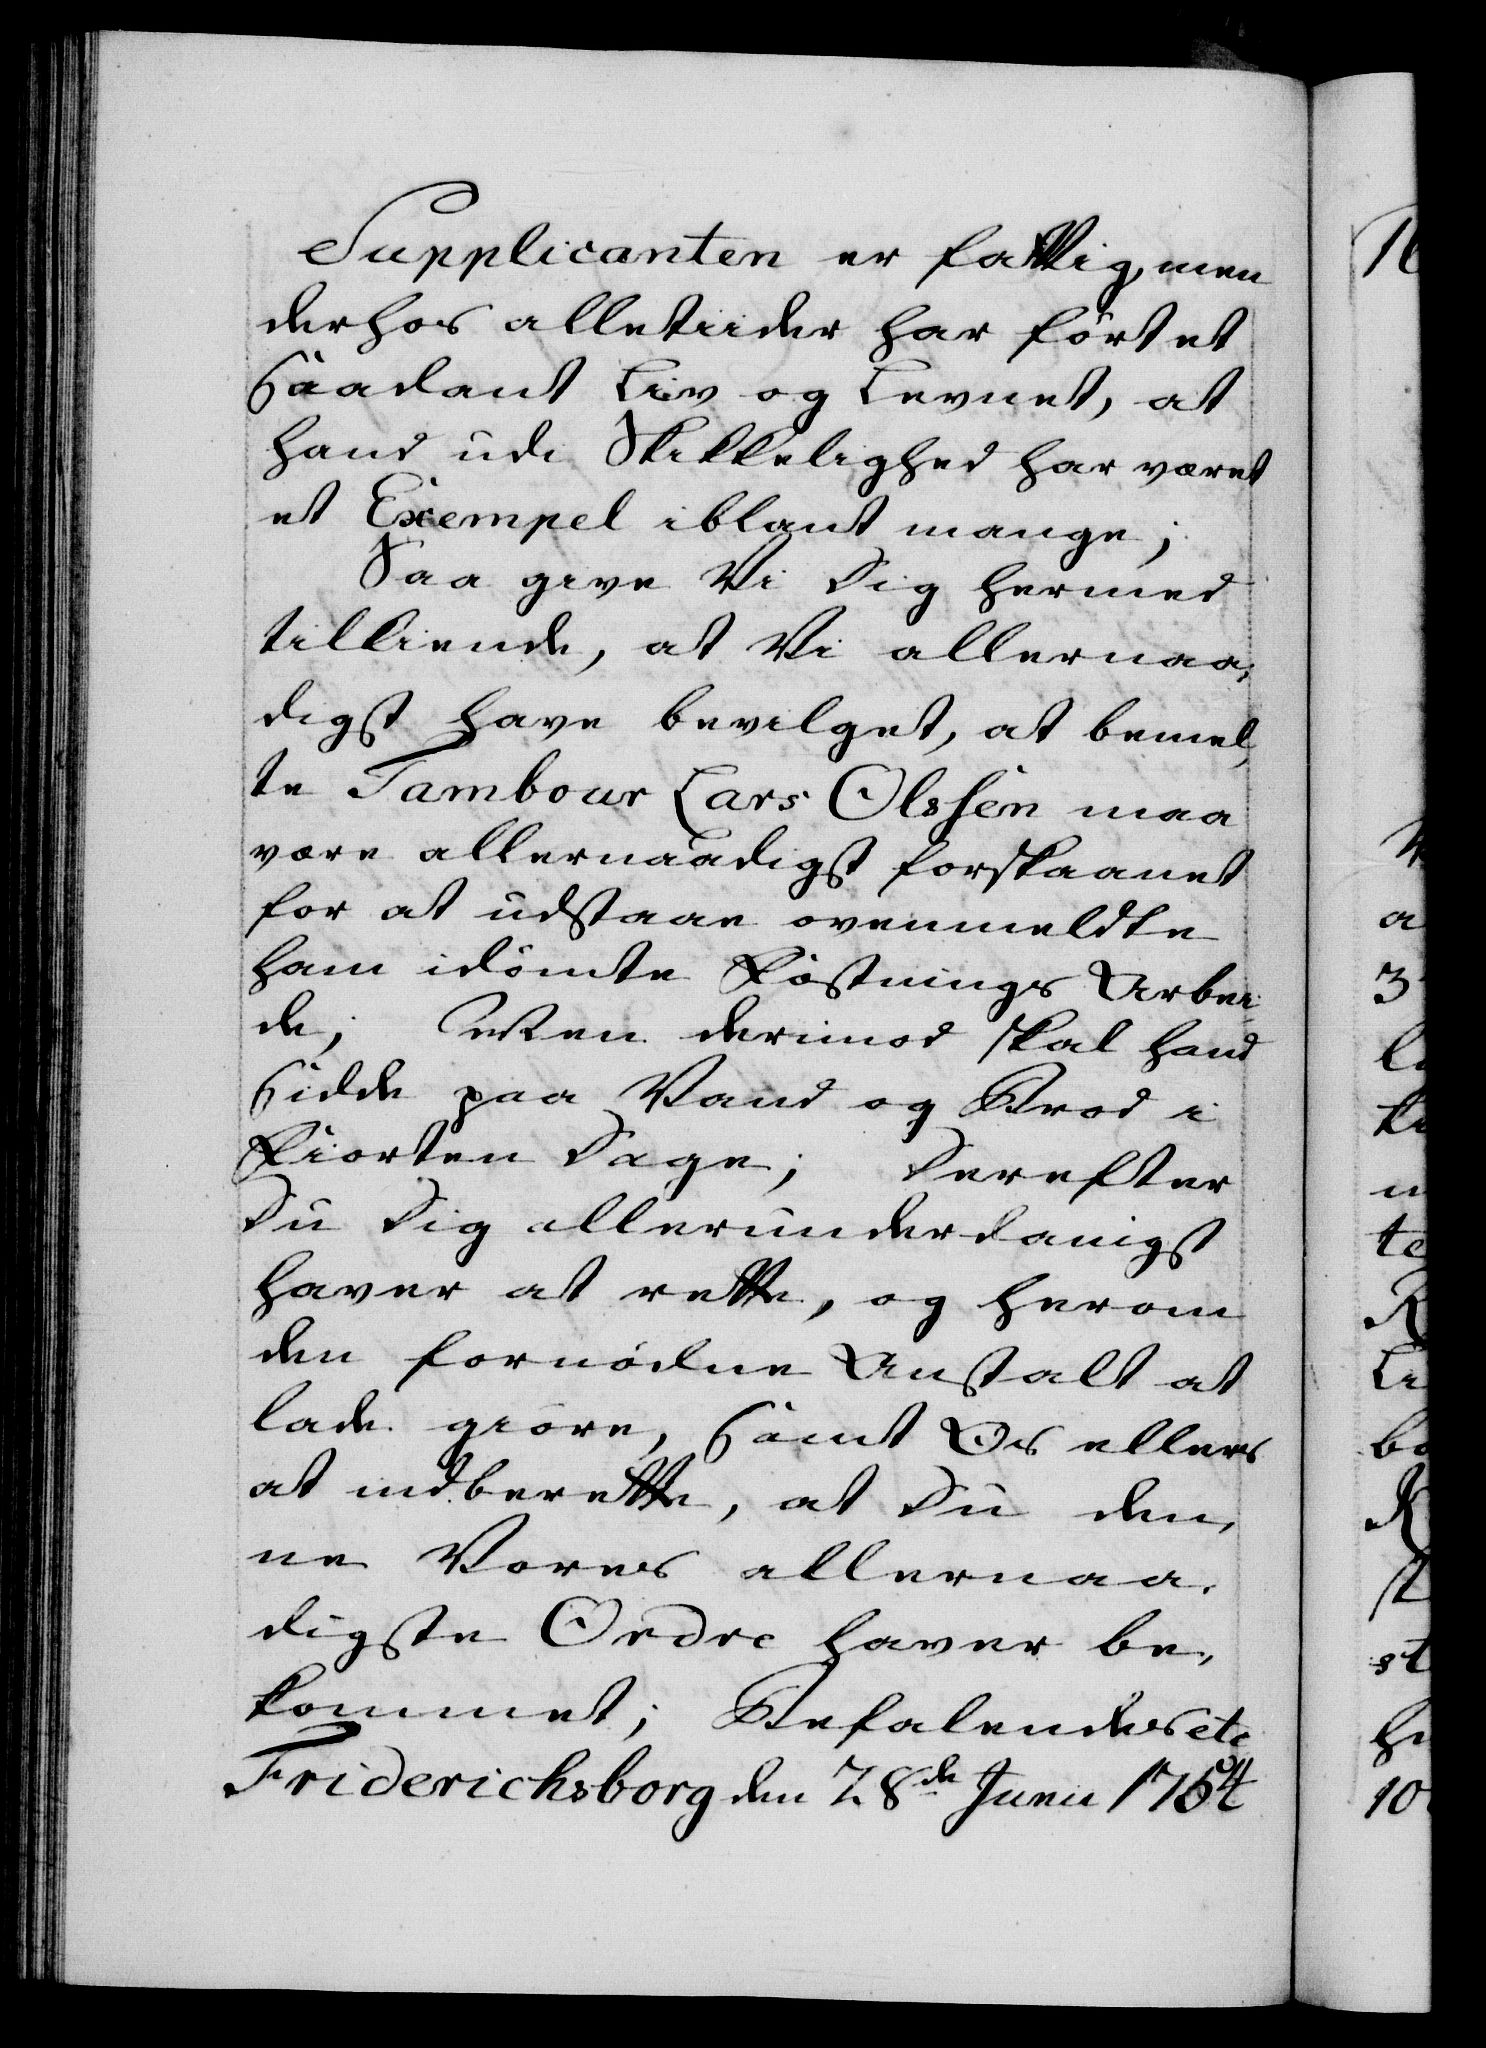 Supplicanten er fattig, men
derhos alletiider har ført et
saadant Liv og Levnet, at
hand udi Skikkelighed har været
et Exempel iblant mange;
Saa give Vi Dig hermed
tilkiende, at Vi allernaa,
digst have bevilget, at bemel,
te Tambour Lars Olssen maa
være allernaadigst forskaanet
for at udstaae ovenmeldte
ham idömte Fæstnings Arbei,
de; Men derimod skal hand
sidde paa Vand og Brød i
Fiorten Dage; Derefter
Du Dig allerunderdanigst
haver at rette, og herom
den fornødne Anstalt at
lade giöre, samt Os ellers
at indberette, at Du den,
ne Vores allernaa,
digste Ordre haver be,
kommet; Befalendes etc
Friderichsborg den 28de Junii 1754